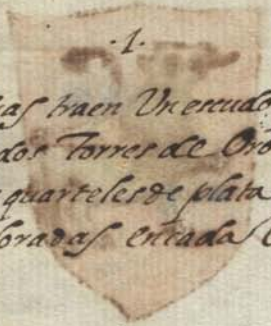 .1.
as traen Un escudo
dos Torres de Oro
quarteles de plata
loradas en cada